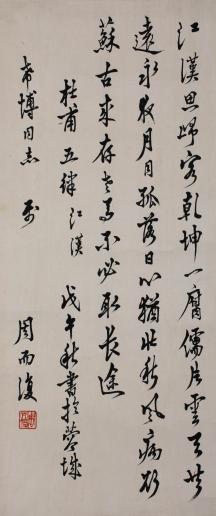 江漢思歸客乾坤一腐儒片雲天共
遠永夜月同孤落日心猶壯秋風病欲
蘇古來存老馬不必取長途
杜甫五律 江漢 戊午秋書於蓉城
希博同志 周而復